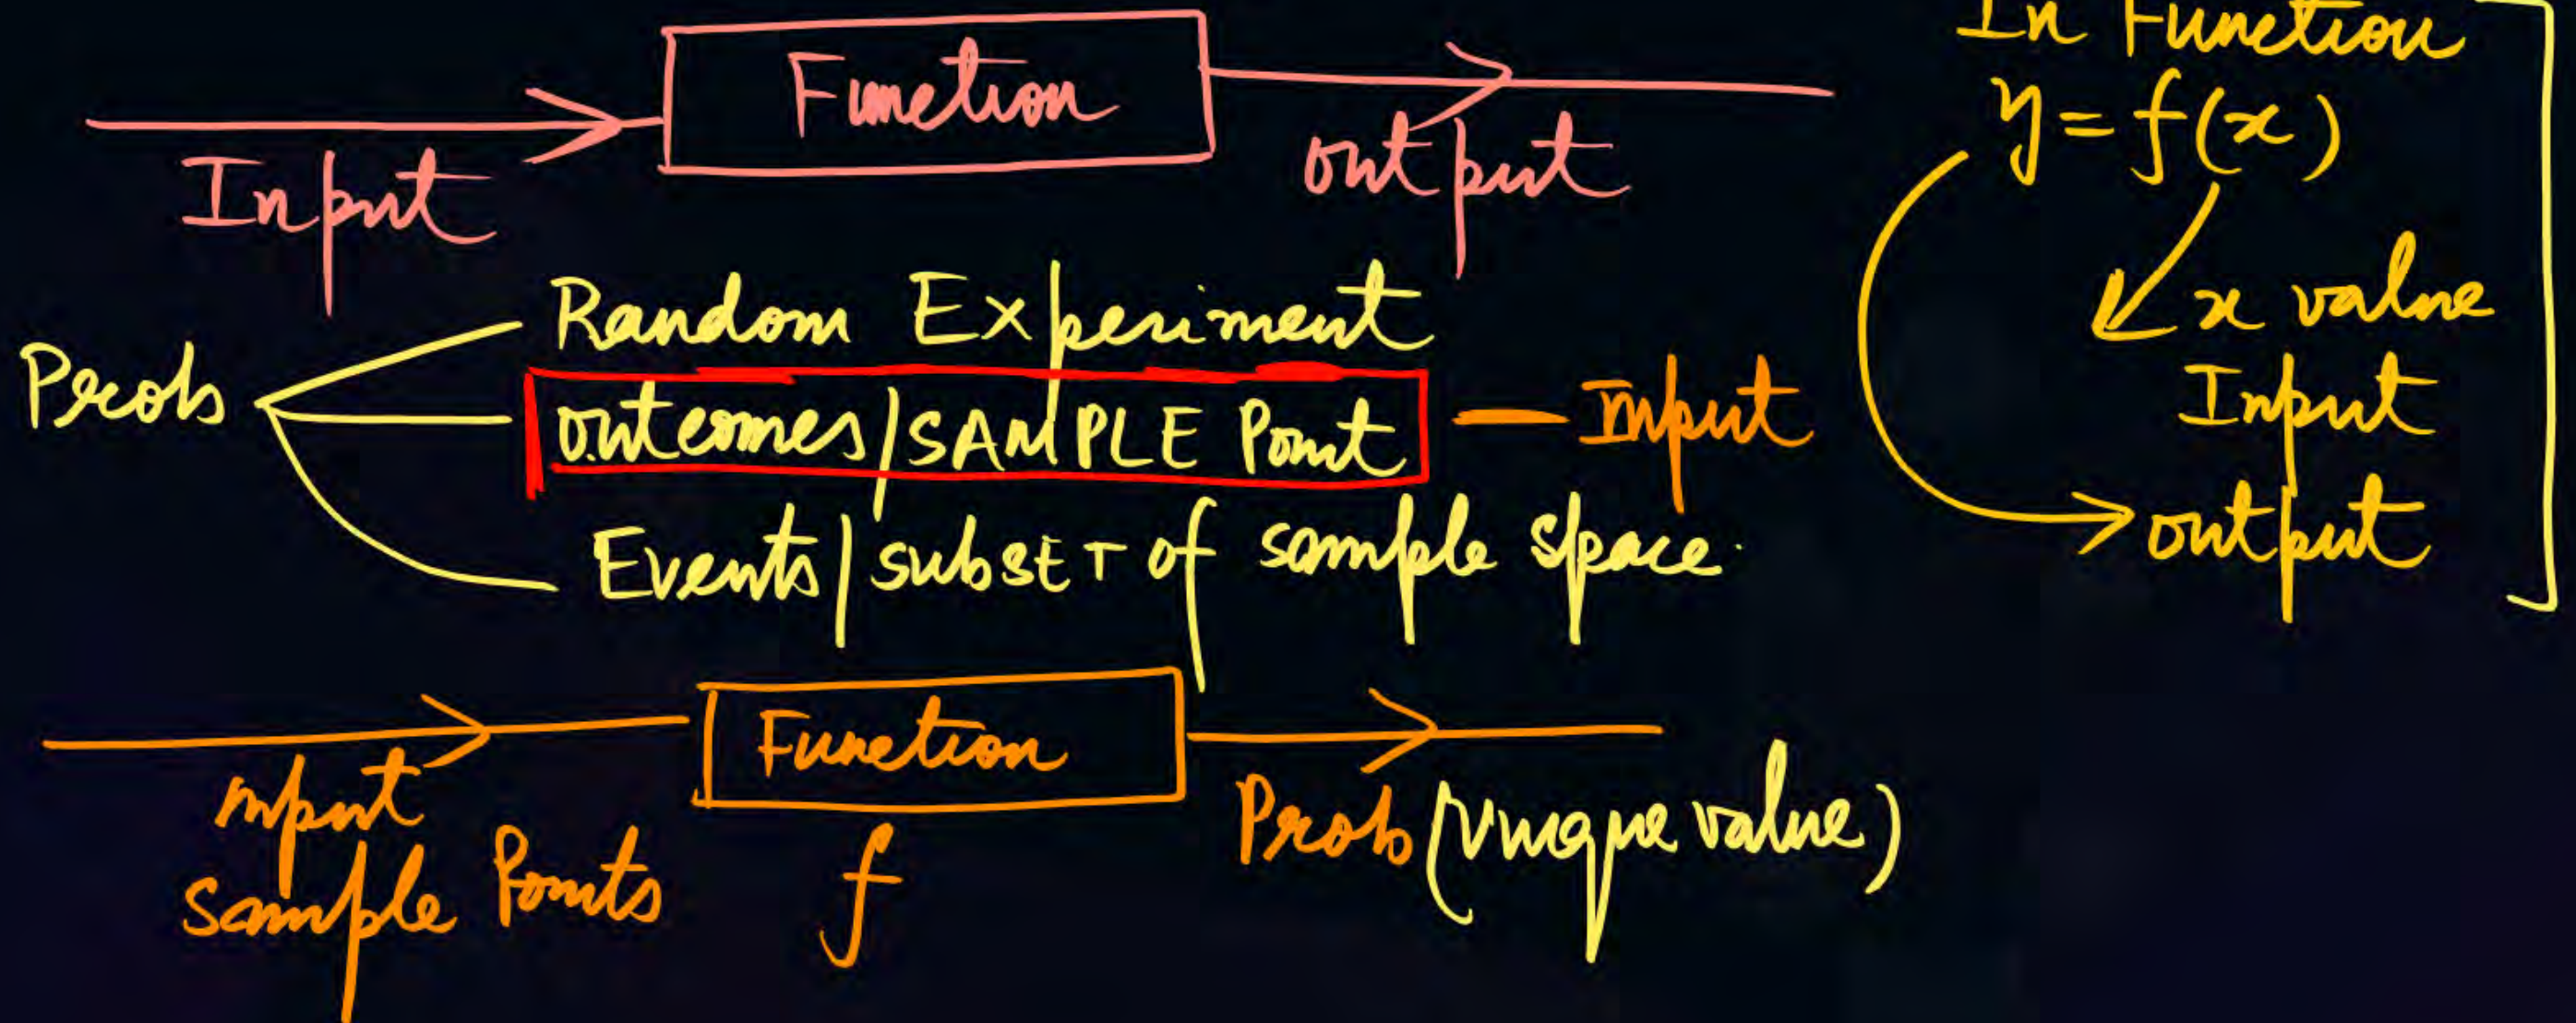 Function
Input
output
In Function
y = f(x)
x value
Input
output
Prob
Random Experiment
outcomes/SAMPLE Point — Input
Events/subset of sample space.
Input
Sample Points
Function
f
Prob (Unique value)